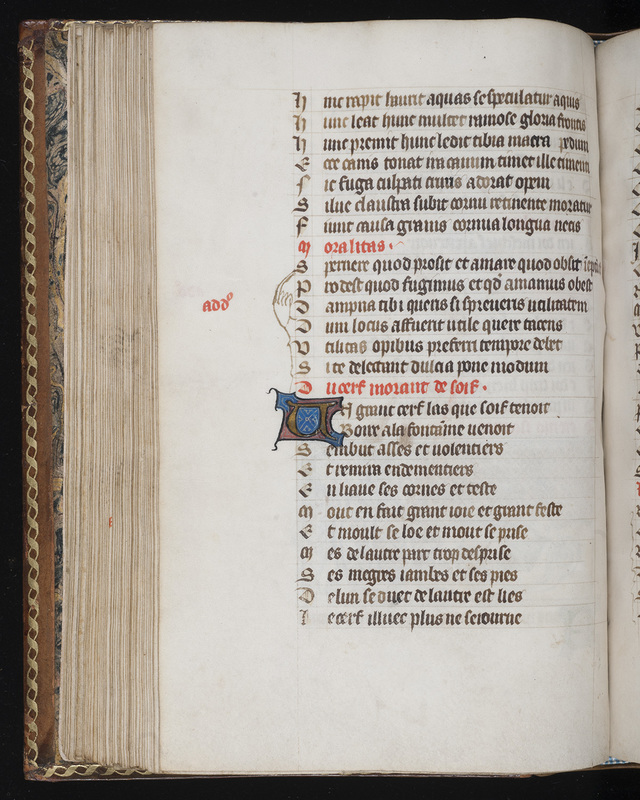 H unc rapit haurit aquas se speculatur aquis
H unc leat hunc mulcet ramose gloria frontis
H unc premit hunc ledit tibia macra pedum
E cce canis tonat ira canum timet ille timenti
S ic fuga culpati cruris adorat opem
S ilue claustra subit cornu retinente moratur
F unt causa grauis cornua longua necis
M oralitas.
S pernere quod prosit et amare quod obsit
P rodest quod fugimus et qd amamus obest
addo
D ampna tibi queris si spreueris utilitatem
D um locus affuerit utile quere tacens
V tilitas opibus preferri tempore debet
S i te delectant dulcia pone modum
D u cerf morant de soif.
U N grant cerf las que soif tenoit
Pour a la fontainne uenoit
S en but asses et uolentiers
E t remira endementiers
E n liaue ses cornes et teste
M out en fait grant ioie et grant feste
E t moult se loe et mout se prise
M es de lautre part trop desprise
S es megres iambes et ses pies
D e lun se duet de lautre est lies
L e cerf illuec plus ne seiourne